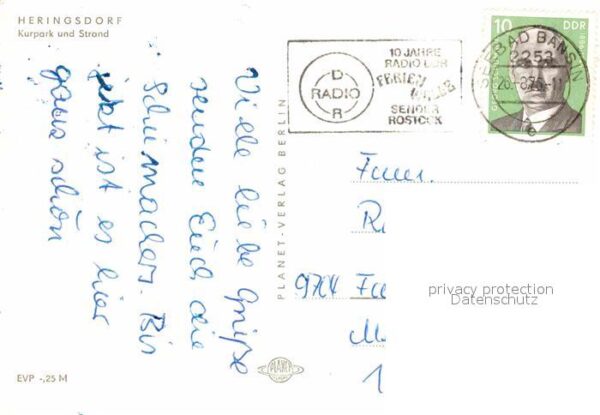 HERINGSDORF
Kurpark und Strand
Viele liebe Grüße
senden Euch die
Schumachers. Bis
jetzt ist es hier
ganz schön
EVP -,25 M
PLANET-VERLAG BERLIN
D
RADIO
R
10 JAHRE
RADIO DDR
FERIEN
WELLE
SENDER
ROSTOCK
SEEBAD BANSIN
2253
10
DDR
Fam.
R
9704 Fa
M
1
privacy protection
Datenschutz